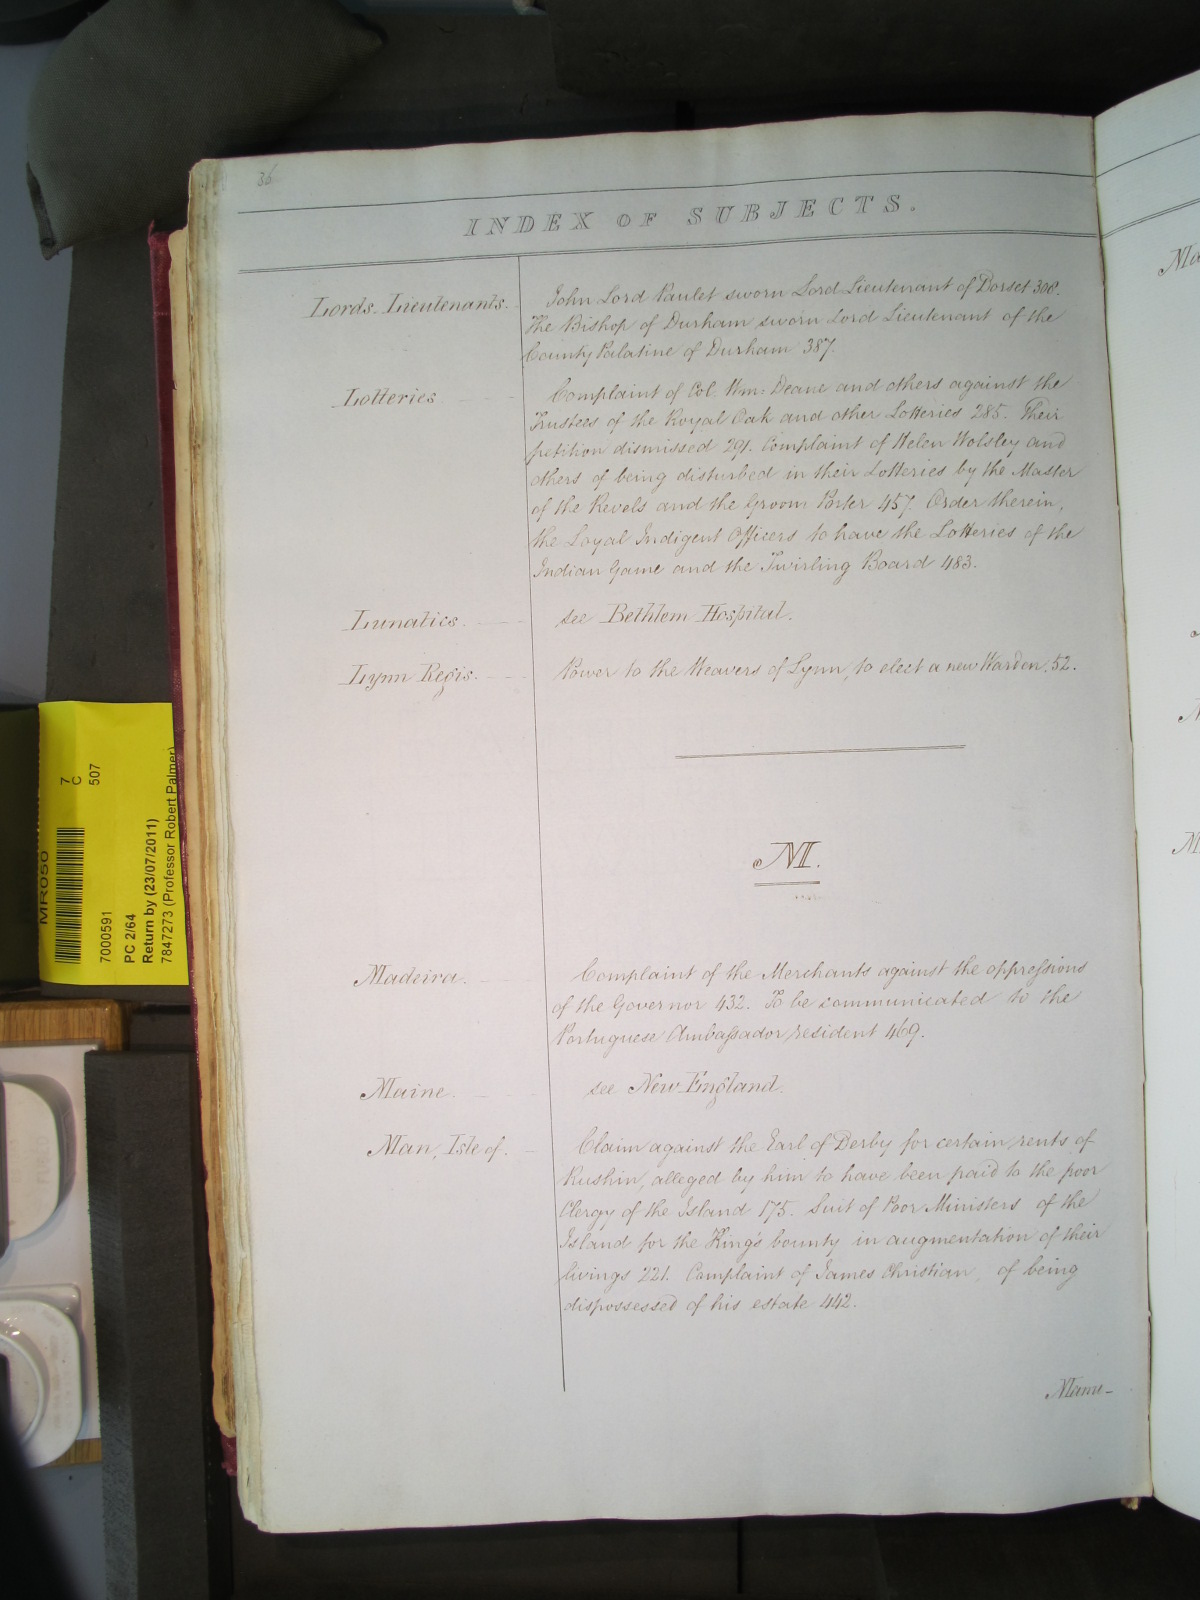 36
INDEX OF SUBJECTS.
Lords Lieutenants.
John Lord Paulet sworn Lord Lieutenant of Dorset 308.
The Bishop of Durham sworn Lord Lieutenant of the
County Palatine of Durham 387.
Lotteries
Complaint of Col. Wm: Deane and others against the
Trustees of the Royal Oak and other Lotteries 285. Their
petition dismissed 291. Complaint of Helen Wolsley and
others of being disturbed in their Lotteries by the Master
of the Revels and the Groom Porter 457. Order therein,
the Loyal Indigent Officers to have the Lotteries of the
Indian Game and the Twirling Board 483.
Lunatics.
see Bethlem Hospital.
Lynn Regis.
Power to the Weavers of Lynn, to elect a new Warden. 52.
M.
Madeira.
Complaint of the Merchants against the oppressions
of the Governor 432. To be communicated to the
Portuguese Ambassador resident 469.
Maine.
see New England.
Man, Isle of.
Claim against the Earl of Derby for certain rents of
Rushin, alleged by him to have been paid to the poor
Clergy of the Island 175. Suit of Poor Ministers of the
Island for the King's bounty in augmentation of their
livings 221. Complaint of James Christian, of being
dispossessed of his estate 442.
Manu-
MR050
7
C
507
7000591
PC 2/64
Return by (23/07/2011)
7847273 (Professor Robert Palmer)